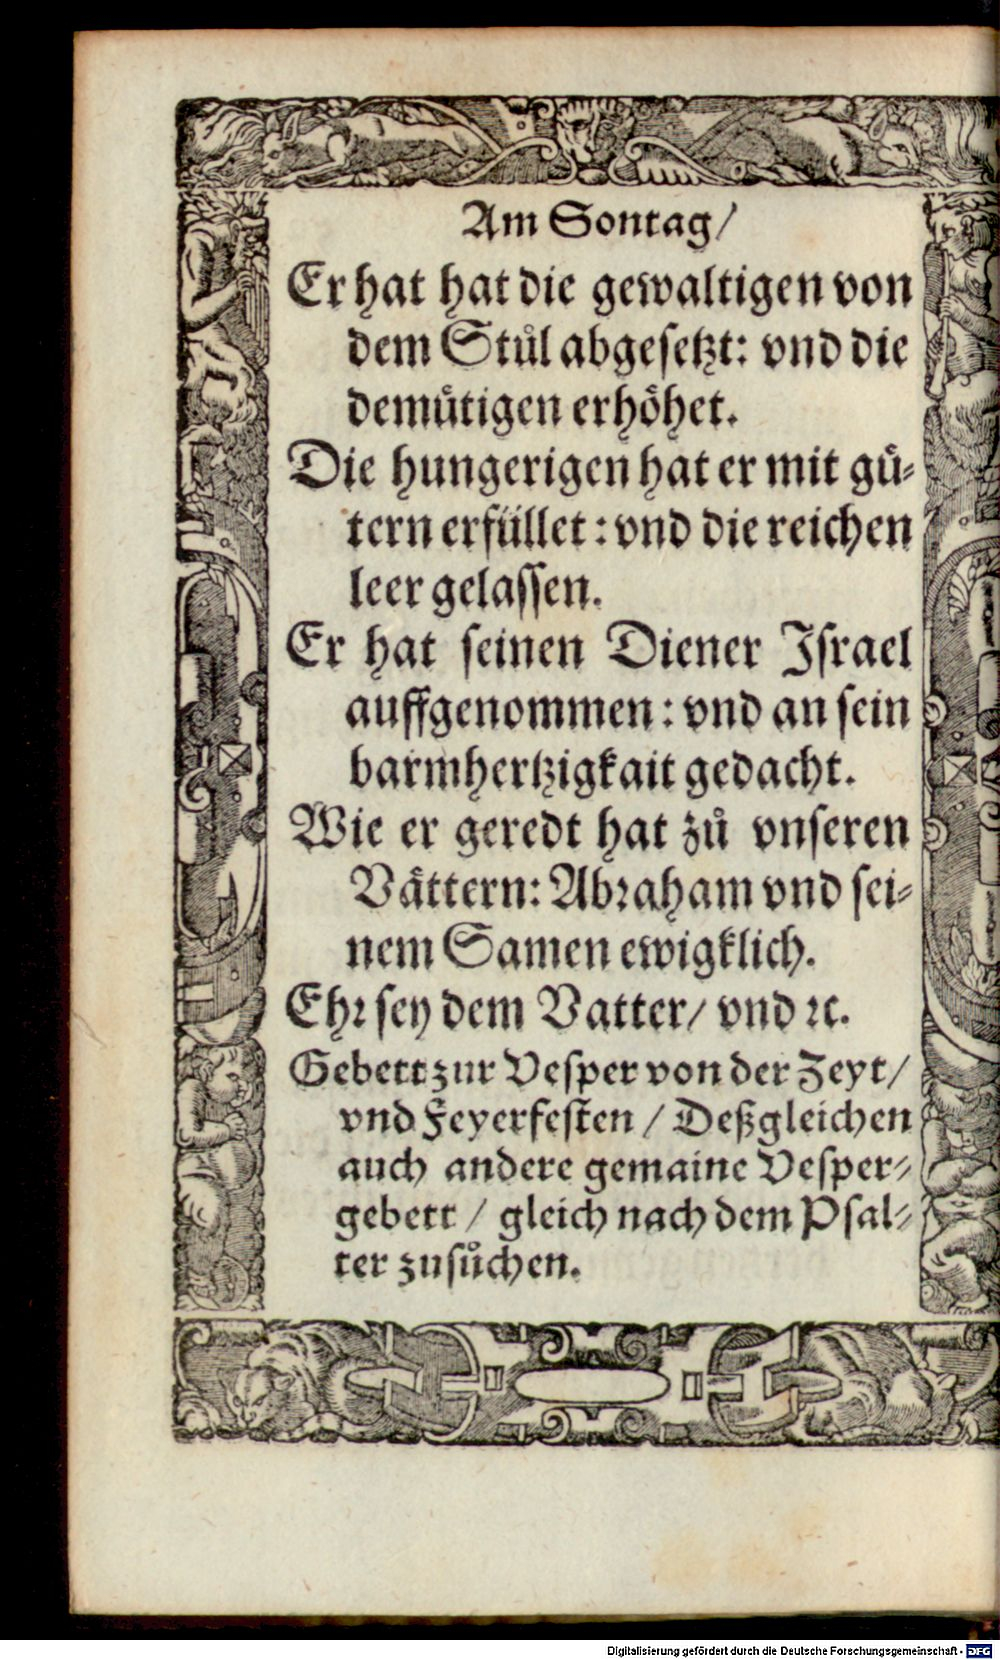 Am Sontag/
Er hat hat die gewaltigen von
dem Stůl abgesetzt: vnd die
demütigen erhöhet.
Die hungerigen hat er mit gü⸗
tern erfüllet: vnd die reichen
leer gelassen.
Er hat seinen Diener Israel
auffgenommen: vnd an sein
barmhertzigkait gedacht.
Wie er geredt hat zů vnseren
Vättern: Abraham vnd sei⸗
nem Samen ewigklich.
Ehr sey dem Vatter/ vnd ꝛc.
Gebett zur Vesper von der Zeyt/
vnd Feyerfesten / Deßgleichen
auch andere gemaine Vesper⸗
gebett / gleich nach dem Psal⸗
ter zusůchen.
Digitalisierung gefördert durch die Deutsche Forschungsgemeinschaft - DFG